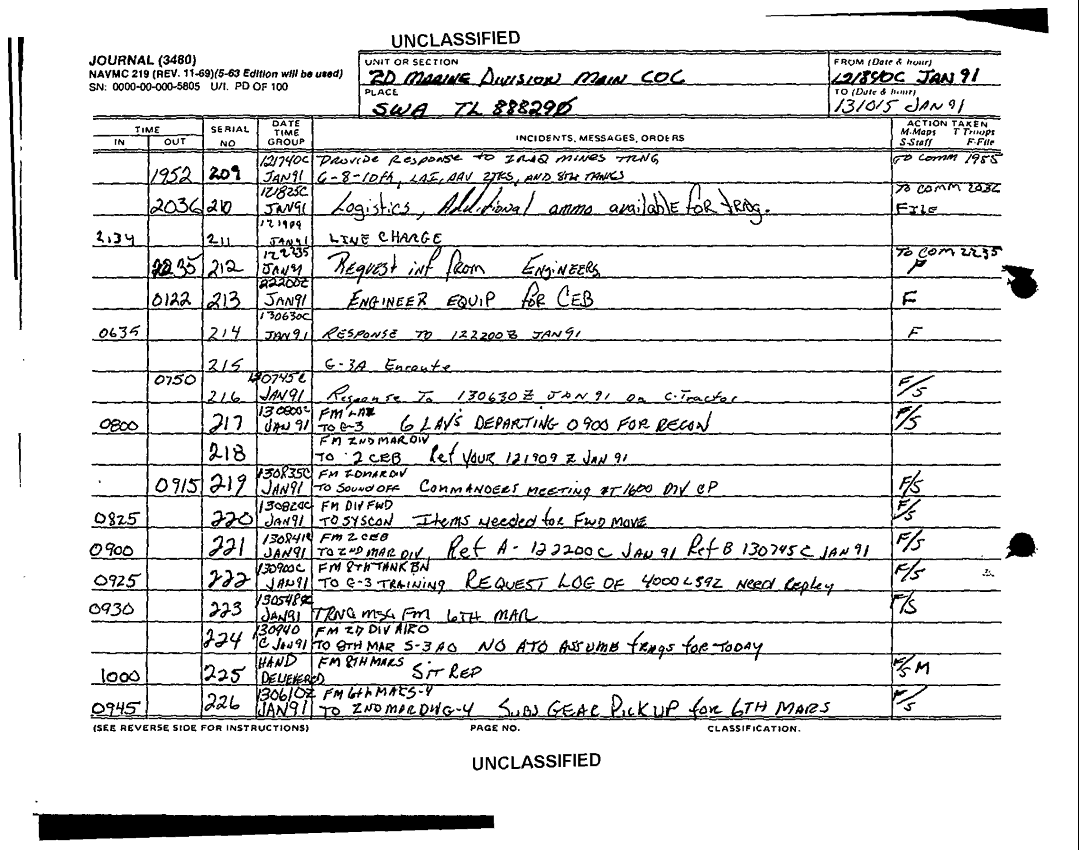 UNCLASSIFIED
JOURNAL (3480)
NAVMC 219 (REV. 11-69)(5-63 Edition will be used)
SN: 0000-00-000-5805 U/I. PD OF 100
UNIT OR SECTION
2D MARINE DIVISION MAIN COC
PLACE
SWA TL 888290
FROM (Date & hour)
121840C JAN 91
TO (Date & hour)
131015 JAN 91
TIME
IN OUT
SERIAL NO
DATE TIME GROUP
INCIDENTS, MESSAGES, ORDERS
ACTION TAKEN
M-Maps T Troops
S-Staff F-File
121740C PROVIDE RESPONSE TO IRAQ MINES TRNG TO COMM 1955
1952 209 JAN91 6-8-10th, LAI, AAV, 2TKS, AND 8TH TANKS
121825C TO COMM 2036
2036 210 JAN91 Logistics, Additional ammo available FOR trng. FILE
121909
2134 211 JAN91 LINE CHARGE
122235 TO COM 2235
2235 212 JAN91 Request inf from ENGINEERS F
122200Z
0122 213 JAN91 ENGINEER EQUIP for CEB F
130630C
0635 214 JAN91 RESPONSE TO 122200Z JAN 91 F
215 G-3A Enroute
0750 130745C F/S
216 JAN91 Response To 130630Z JAN 91 on C-Tractor
130800C FM LAI
0800 217 JAN 91 TO G-3 6 LAV'S DEPARTING 0900 FOR RECON F/S
FM 2ND MAR DIV
218 TO 2 CEB Ref YOUR 121909 Z JAN 91
130835C FM 2DMARDIV
0915 219 JAN91 TO SOUNDOFF COMMANDERS MEETING AT 1600 DIV CP F/S
130820C FM DIV FWD
0825 220 JAN91 TO SYSCON Items Needed for FWD MOVE F/S
130841C FM 2 CEB
0900 221 JAN91 TO 2ND MAR DIV, Ref A - 122200C JAN 91 Ref B 130745C JAN 91 F/S
130900C FM 8TH TANK BN
0925 222 JAN91 TO G-3 TRAINING REQUEST LOG OF 4000 L592 NEED Repley F/S
130548Z
0930 223 JAN91 TRNG MSG FM 6TH MAR F/S
130940 FM 2D DIV AIRO
224 C JAN91 TO 8TH MAR S-3 AO NO ATO ASSUMB frags for TODAY
HAND FM 8TH MARS
1000 225 DELIVERED SIT REP F/S M
130610Z FM 6th MAR S-4
0945 226 JAN91 TO 2ND MAR DIV G-4 SUBS GEAR PICK UP for 6TH MARS F/S
(SEE REVERSE SIDE FOR INSTRUCTIONS) PAGE NO. CLASSIFICATION.
UNCLASSIFIED